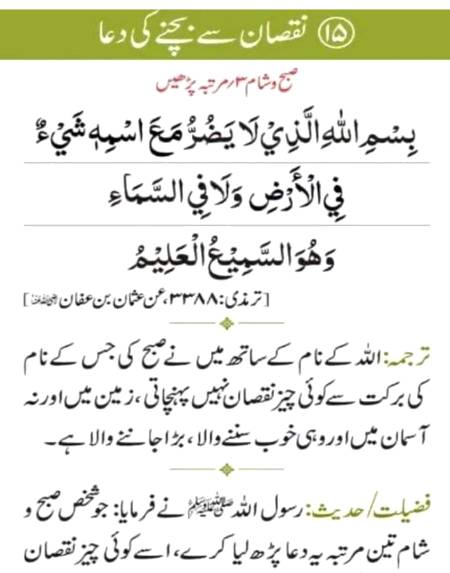 ۱۵ نقصان سے بچنے کی دعا
صبح و شام ۳؍ مرتبہ پڑھیں
بِسْمِ اللهِ الَّذِيْ لَا يَضُرُّ مَعَ اسْمِهٖ شَيْءٌ
فِي الْأَرْضِ وَلَا فِي السَّمَاءِ
وَهُوَ السَّمِيْعُ الْعَلِيْمُ
[ترمذی: ۳۳۸۸، عن عثمان بن عفان ؓ]
ترجمہ: اللہ کے نام کے ساتھ میں نے صبح کی جس کے نام
کی برکت سے کوئی چیز نقصان نہیں پہنچاتی، زمین میں اور نہ
آسمان میں اور وہی خوب سننے والا، بڑا جاننے والا ہے۔
فضیلت/حدیث: رسول اللہ ﷺ نے فرمایا: جو شخص صبح و
شام تین مرتبہ یہ دعا پڑھ لیا کرے، اسے کوئی چیز نقصان